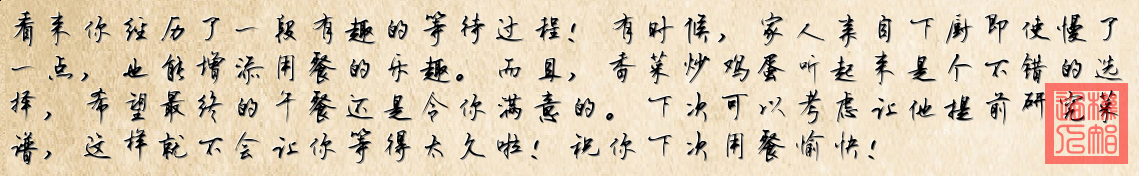 看来你经历了一段有趣的等待过程！有时候，家人亲自下厨即使慢了
一点，也能增添用餐的乐趣。而且，香菜炒鸡蛋听起来是个不错的选
择，希望最终的午餐还是令你满意的。下次可以考虑让他提前研究菜
谱，这样就不会让你等得太久啦！祝你下次用餐愉快！